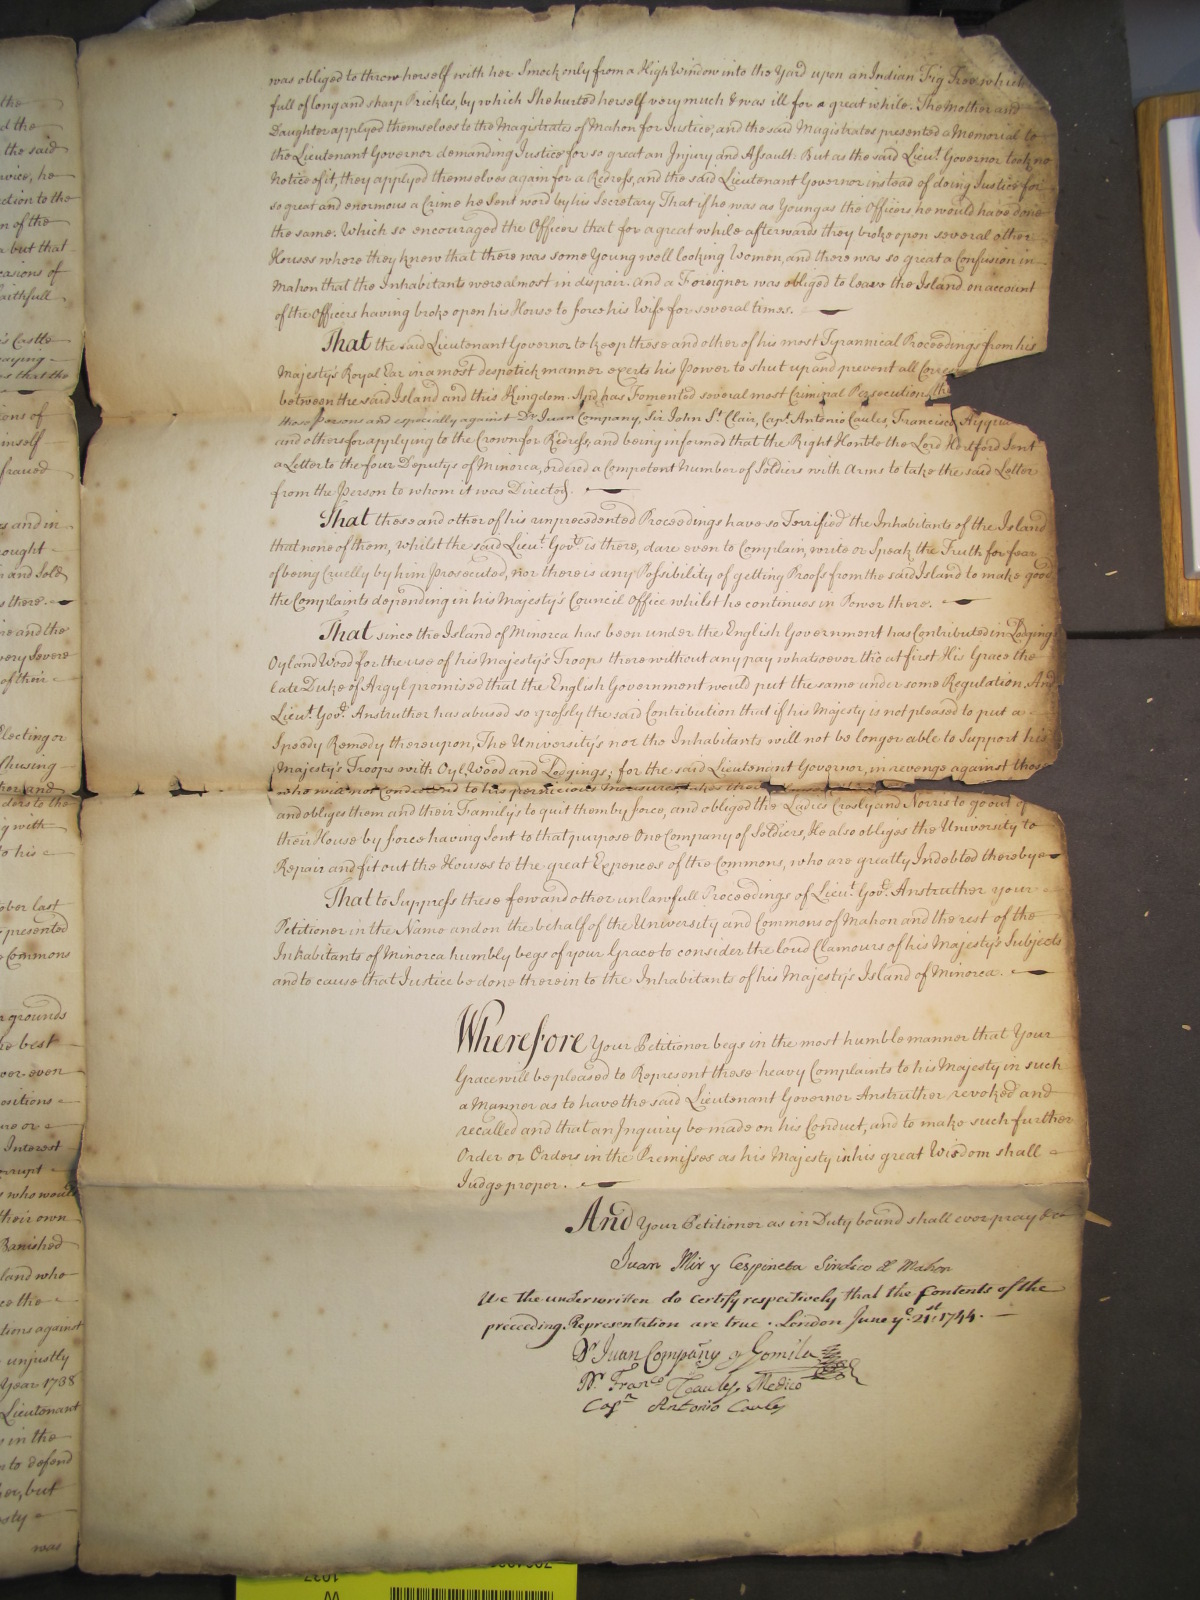 was obliged to throw herself with her Smock only from a High Window into the Yard upon an Indian Fig Tree which
full of long and sharp Prickles, by which She hurted herself very much & was ill for a great while. The Mother and
Daughter applyed themselves to the Magistrates of Mahon for Justice, and the said Magistrates presented a Memorial to
the Lieutenant Governor demanding Justice for so great an Injury and Assault. But as the said Lieut. Governor took no
Notice of it, they applyed themselves again for a Redress, and the said Lieutenant Governor instead of doing Justice for
so great and enormous a Crime he Sent word by his Secretary That if he was as Young as the Officers he would have done
the same. Which so encouraged the Officers that for a great while afterwards they broke open several other
Houses where they knew that there was some Young well looking Women, and there was so great a Confusion in
Mahon that the Inhabitants were almost in dispair. And a Foreigner was obliged to leave the Island on account
of the Officers having broke open his House to force his Wife for several times.
That the said Lieutenant Governor to keep these and other of his most Tyrannical Proceedings from his
Majesty's Royal Ear in a most despotick manner exerts his Power to shut up and prevent all
between the said Island and this Kingdom. And has Fomented several most Criminal Persecutions
those Persons and especially against Dr. Juan Company, Sir John St. Clair, Capt. Antonio Caules, Francisco
and others for applying to the Crown for Redress, and being informed that the Right Honble the Lord Hertford Sent
a Letter to the four Deputys of Minorca, ordered a Competent Number of Soldiers with Arms to take the said Letter
from the Person to whom it was Directed.
That these and other of his unprecedented Proceedings have so Terrified the Inhabitants of the Island
that none of them, whilst the said Lieut. Govr. is there, dare even to Complain, write or Speak the Truth for fear
of being Cruelly by him Prosecuted, nor there is any Possibility of getting Proofs from the said Island to make good
the Complaints depending in his Majesty's Council Office whilst he continues in Power there.
That since the Island of Minorca has been under the English Government has Contributed in Lodgings
Oyl and Wood for the use of his Majesty's Troops there without any pay whatsoever tho' at first His Grace the
late Duke of Argyl promised that the English Government would put the same under some Regulation. And
Lieut. Govr. Anstruther has abused so grossly the said Contribution that if his Majesty is not pleased to put a
Speedy Remedy thereupon, The University's nor the Inhabitants will not be longer able to Support his
Majesty's Troops with Oyl, Wood and Lodgings; for the said Lieutenant Governor, in revenge against those
who will not Condescend to his pernicious Measures, takes
and obliges them and their Family's to quit them by force, and obliged the Ladies Crosly and Norris to go out of
their House by force having Sent to that purpose One Company of Soldiers, He also obliges the University to
Repair and fit out the Houses to the great Expences of the Commons, who are greatly Indebted thereby
That to Suppress these few and other unlawfull Proceedings of Lieut. Govr. Anstruther your
Petitioner in the Name and on the behalf of the University and Commons of Mahon and the rest of the
Inhabitants of Minorca humbly begs of your Grace to consider the loud Clamours of his Majesty's Subjects
and to cause that Justice be done therein to the Inhabitants of his Majesty's Island of Minorca.
Wherefore Your Petitioner begs in the most humble manner that Your
Grace will be pleased to Represent these heavy Complaints to his Majesty in such
a Manner as to have the said Lieutenant Governor Anstruther revoked and
recalled and that an Inquiry be made on his Conduct, and to make such further
Order or Orders in the Premisses as his Majesty in his great Wisdom shall
Judge proper.
And Your Petitioner as in Duty bound shall ever pray &c
Juan Mir y Cespineta Sindico de Mahon
We the underwritten do certify respectively that the Contents of the
preceeding Representation are true. London June ye. 21st. 1744.
Dr. Juan Company y Gomila
Dr. Franco Caules Medico
Capn Antonio Caules
the
d the
the said
he
ction to the
n of the
but that
casions of
aithfull
's Castle
s that the
ions of
imself
fraued
s and in
ought
and Sold
s there.
ne and the
very severe
of their
Electing or
Chusing
ders to the
g with
to his
ober last
presented
Commons
grounds
he best
ever even
ositions
ure or
Interest
orrupt
who would
their own
Banished
land who
ce the
tions against
unjustly
Year 1738
Lieutenant
in the
to defend
her, but
esty
was
1037
W